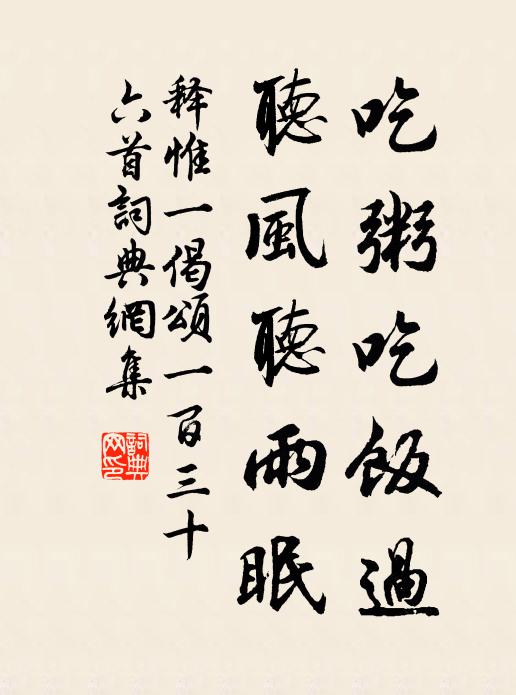 吃粥吃飯過
聽風聽雨眠
释惟一偈頌一百三十
六首詞典網集
詞典網印